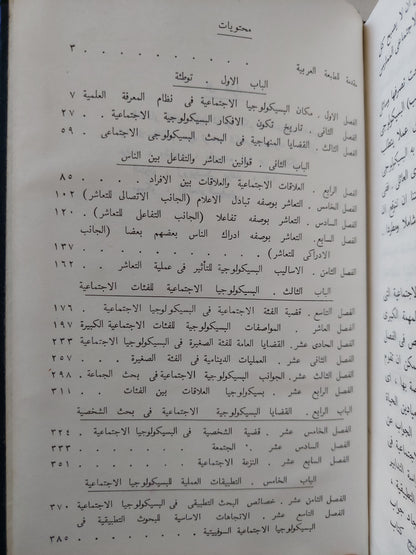 محتويات
مقدمة للطبعة العربية . . . . . . . . . ٣
الباب الاول . توطئة
الفصل الاول . مكان البسيكولوجيا الاجتماعية فى نظام المعرفة العلمية ٧
الفصل الثانى . تاريخ تكون الافكار البسيكولوجية الاجتماعية . ٢٧
الفصل الثالث . القضايا المنهاجية فى البحث البسيكولوجى الاجتماعى ٥٩
الباب الثانى . قوانين التعاشر والتفاعل بين الناس
الفصل الرابع . العلاقات الاجتماعية والعلاقات بين الافراد . . . ٨٥
الفصل الخامس . التعاشر بوصفه تبادل الاعلام (الجانب الاتصالى للتعاشر) ١٠٢
الفصل السادس . التعاشر بوصفه تفاعلا (الجانب التفاعل للتعاشر) ١٢٠
الفصل السابع . التعاشر بوصفه ادراك الناس بعضهم بعضا (الجانب
الادراكى للتعاشر) . . . . . . . . ١٣٧
الفصل الثامن . الاساليب البسيكولوجية للتأثير فى عملية التعاشر . . ١٦٢
الباب الثالث . البسيكولوجيا الاجتماعية للفئات الاجتماعية
الفصل التاسع . قضية الفئة الاجتماعية فى البسيكولوجيا الاجتماعية . ١٧٦
الفصل العاشر . المواصفات البسيكولوجية للفئات الاجتماعية الكبيرة ١٩٧
الفصل الحادى عشر . القضايا العامة للفئة الصغيرة فى البسيكولوجيا الاجتماعية ٢٣٣
الفصل الثانى عشر . العمليات الدينامية فى الفئة الصغيرة . . . ٢٥٧
الفصل الثالث عشر . الجوانب البسيكولوجية الاجتماعية فى بحث الجماعة . ٢٩٨
الفصل الرابع عشر . بسيكولوجيا العلاقات بين الفئات . . . ٣١١
الباب الرابع . القضايا البسيكولوجية الاجتماعية فى بحث الشخصية
الفصل الخامس عشر . قضية الشخصية فى البسيكولوجيا الاجتماعية . ٣٢٤
الفصل السادس عشر . الجتمعة . . . . . . . ٣٣٣
الفصل السابع عشر . النزعة الاجتماعية . . . . . ٣٥١
الباب الخامس . التطبيقات العملية للبسيكولوجيا الاجتماعية
الفصل الثامن عشر . خصائص البحث التطبيقى فى البسيكولوجيا الاجتماعية . ٣٧٠
الفصل التاسع عشر . الاتجاهات الاساسية للبحوث التطبيقية فى
البسيكولوجيا الاجتماعية السوفييتية . . . . ٣٨٥